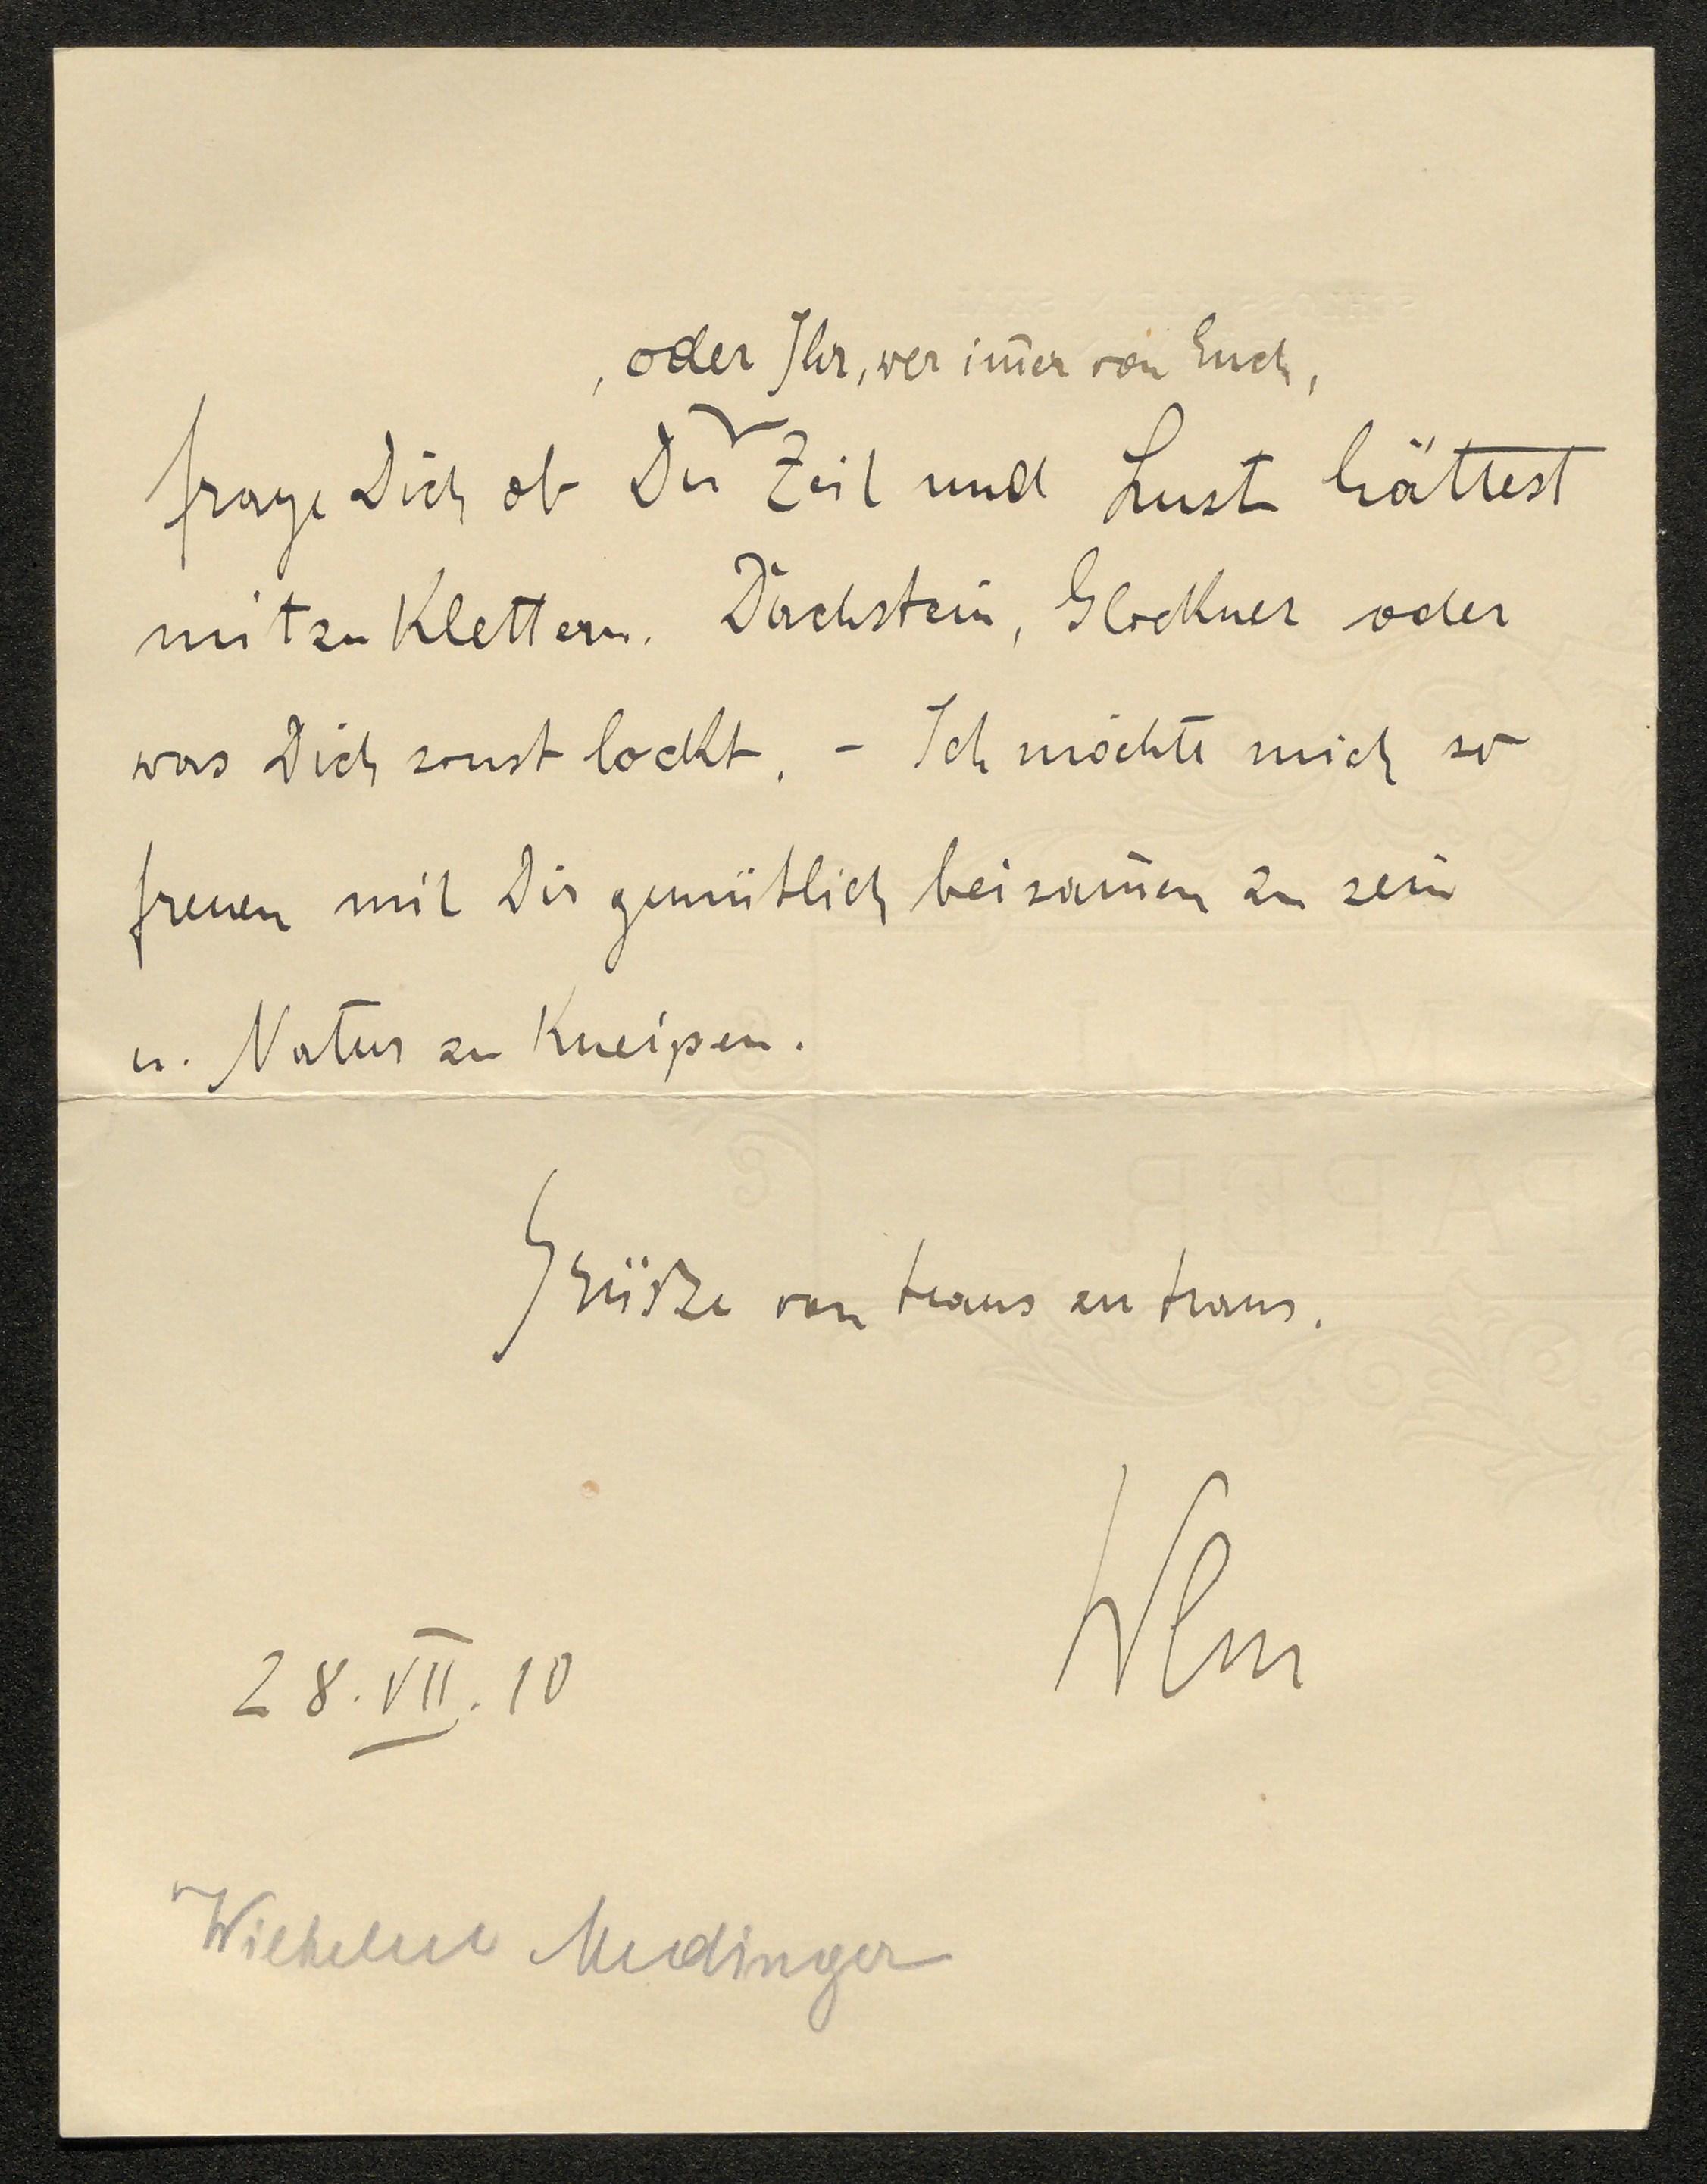 , oder Ihr, wer im̄er von Euch,
frage Dich ob Du Zeit und Lust hättest
mitzuklettern. Dachstein, Glockner oder
was Dich sonst lockt. – Ich möchte mich so
freuen mit Dir gemütlich beisam̄en zu sein
u. Natur zu Kneipen.
Grüße von Haus zu Haus.
Wlm
28. VII. 10
Wilhelm Medinger
PAPER